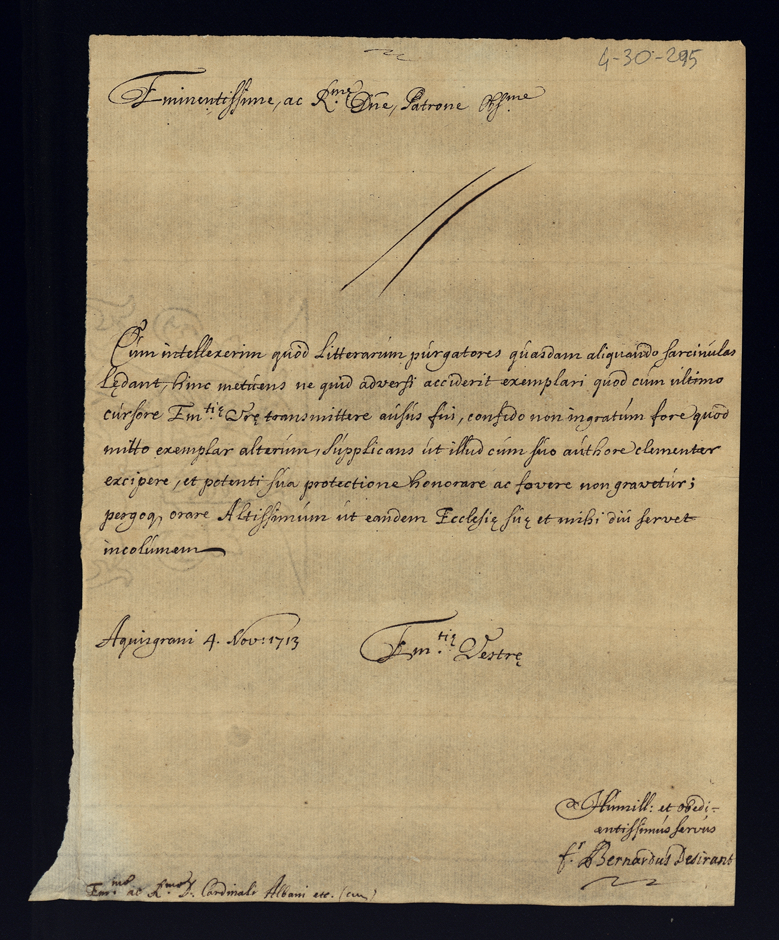 4-30-295
Eminentissime, ac R.me Dñe, Patrone
Cum intellexerim quod Litterarum purgatores quasdam aliquando sarcinulas
lędant, hinc metuens ne quid adversi acciderit exemplari quod cum ultimo
cursore Em.tię Vrę transmittere ausus fui, confido non ingratum fore quod
mitto exemplar alterum, supplicans ut illud cum suo authore clementer
excipere, et potenti sua protectione honorare ac fovere non gravetur;
pergoq, orare Altissimum ut eandem Ecclesię suę et mihi diu servet
incolumem
Aquisgrani 4. Nov: 1713
Em.tię Vestrę
Humill: et obedi-
entissimus servus
f.r Bernardus Desirant
Em.mo ac R.mo D. Cardinali Albani etc.